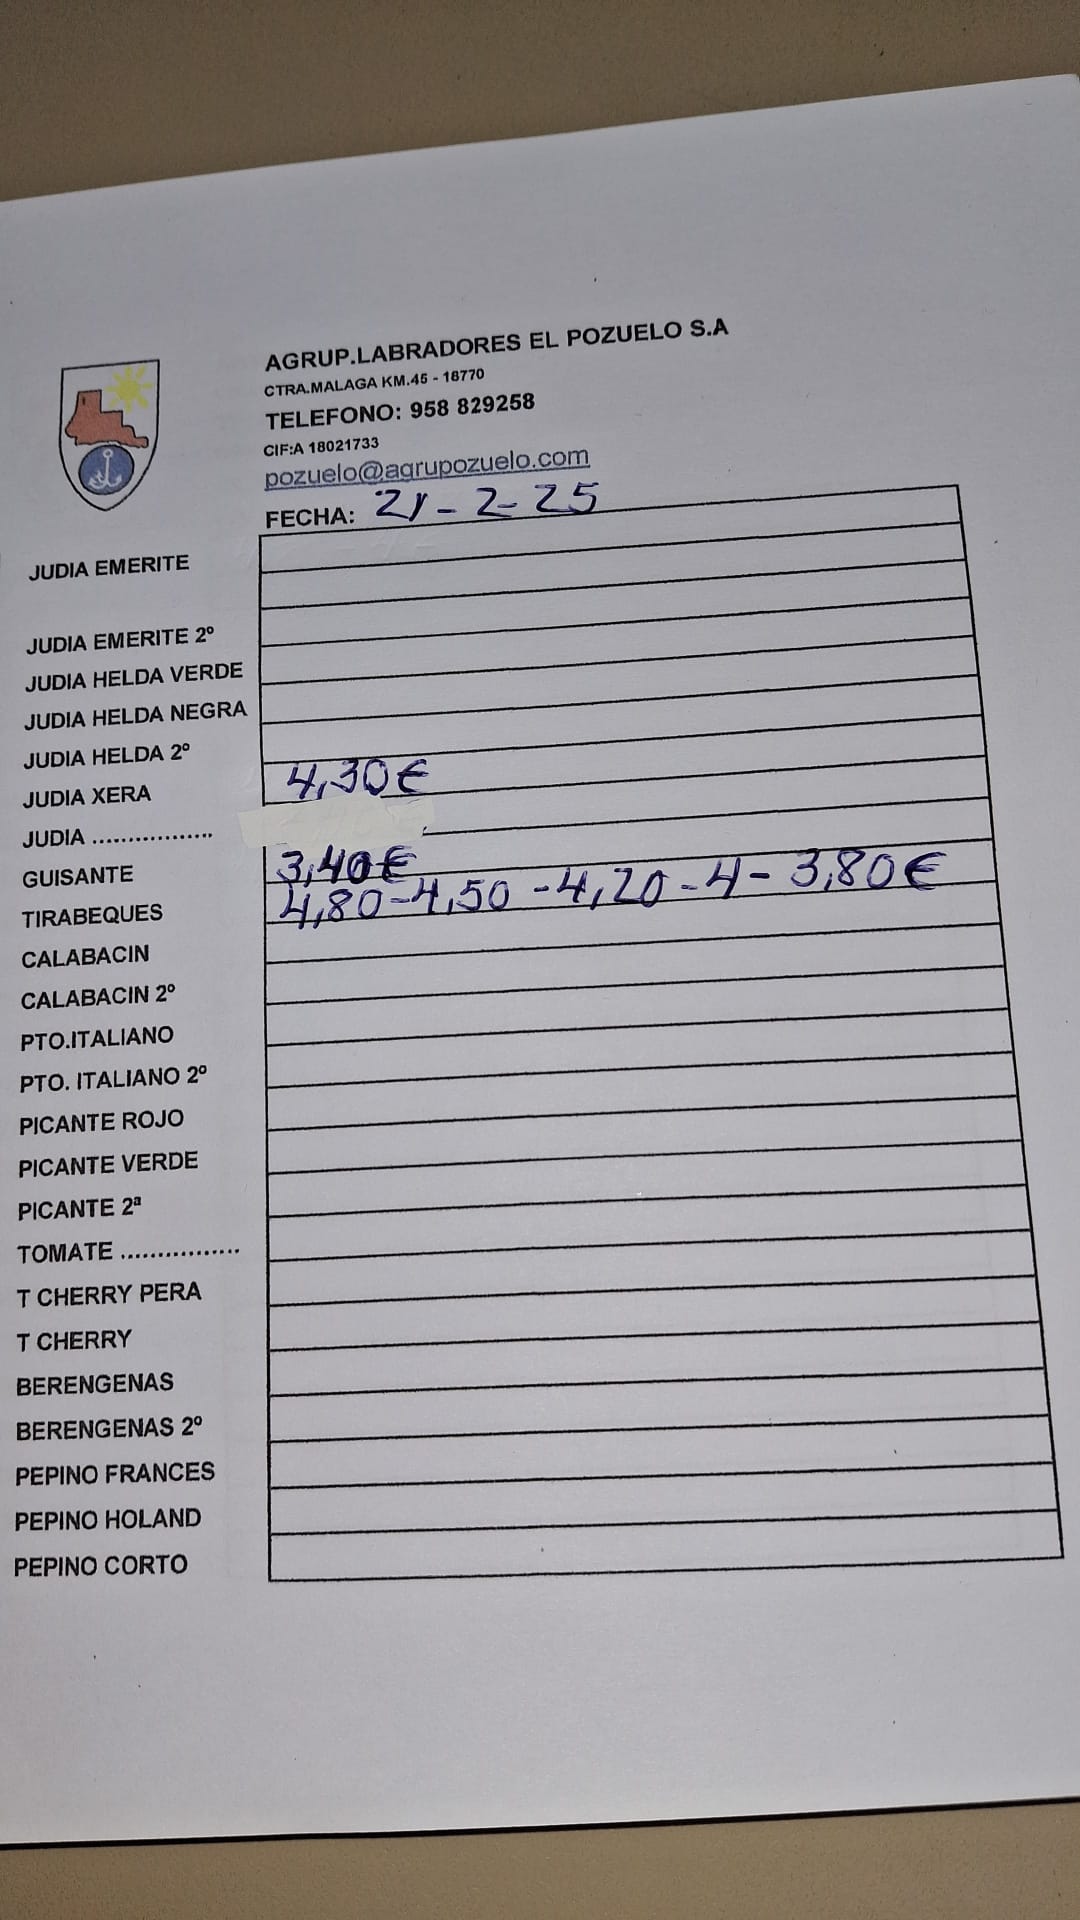 AGRUP.LABRADORES EL POZUELO S.A
CTRA.MALAGA KM.45 - 18770
TELEFONO: 958 829258
CIF:A 18021733
pozuelo@agrupozuelo.com
FECHA: 21-2-25
JUDIA EMERITE
JUDIA EMERITE 2º
JUDIA HELDA VERDE
JUDIA HELDA NEGRA
JUDIA HELDA 2º
JUDIA XERA 4,30€
JUDIA .................
GUISANTE 3,40€
TIRABEQUES 4,80-4,50-4,20-4-3,80€
CALABACIN
CALABACIN 2º
PTO.ITALIANO
PTO. ITALIANO 2º
PICANTE ROJO
PICANTE VERDE
PICANTE 2ª
TOMATE ................
T CHERRY PERA
T CHERRY
BERENGENAS
BERENGENAS 2º
PEPINO FRANCES
PEPINO HOLAND
PEPINO CORTO